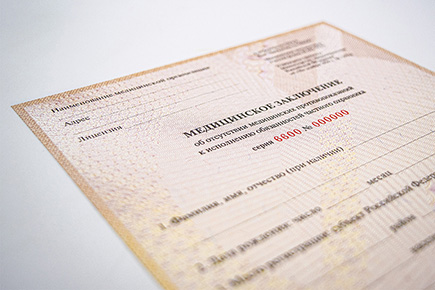 Наименование медицинской организации
Адрес
Лицензия
МЕДИЦИНСКОЕ ЗАКЛЮЧЕНИЕ
об отсутствии медицинских противопоказаний
к исполнению обязанностей частного охранника
серия 6600 № 000000
1. Фамилия, имя, отчество (при наличии)
2. Дата рождения: число месяц
3. Место регистрации: субъект Российской Федера
район